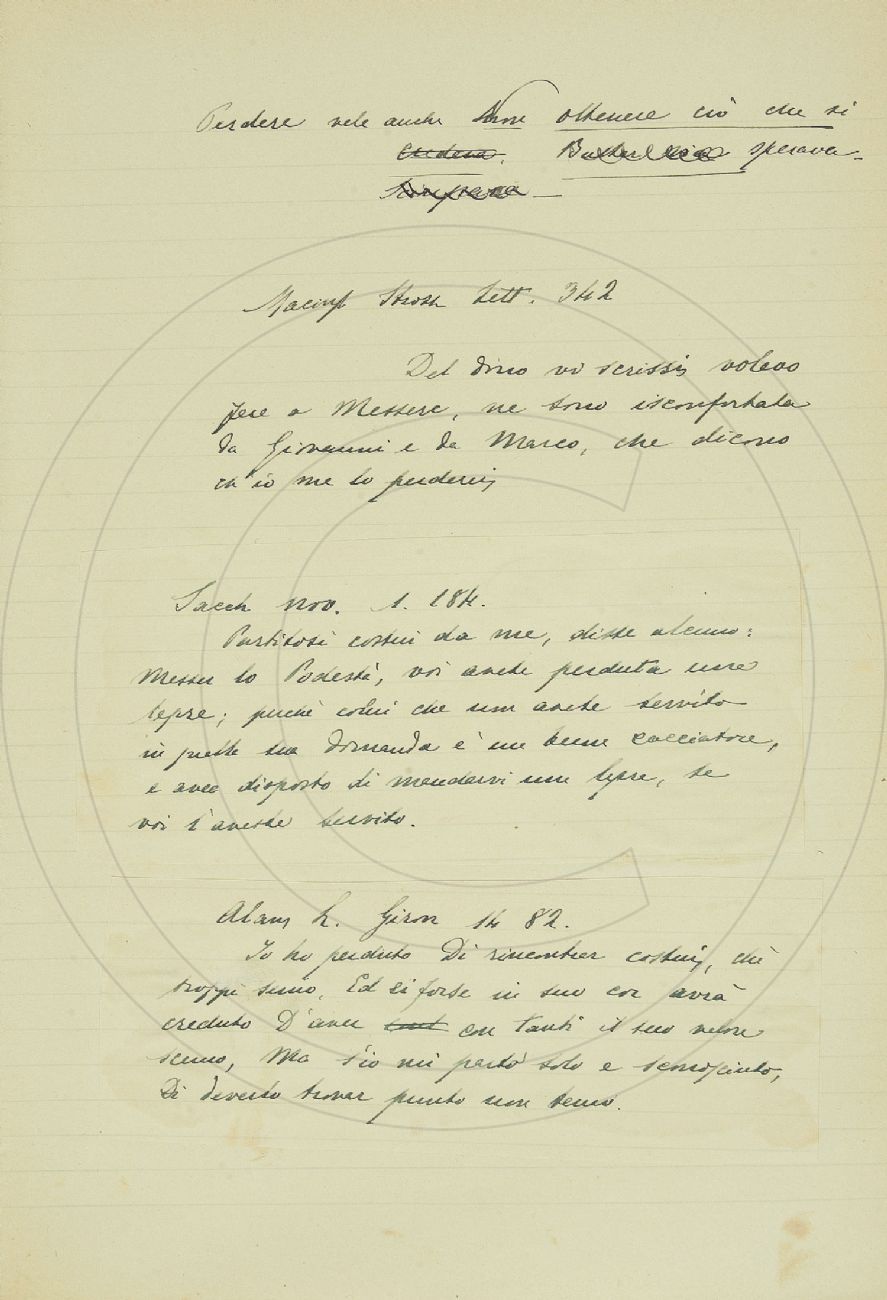 Perdere vale anche Non ottenere ciò che si
credeva. sperava
Macing Strozz Lett. 342
Del dirvo vi scrissi volevo
fare a Messere, ne sono isconfortata
da Giovanni e da Marco, che dicono
ch'io me lo perderei
Sacch nov. 1. 184.
Partitosi costui da me, disse alcuno:
Messer lo Podestà, voi avete perduta una
lepre; perchè colui che non avete servito
in quella sua domanda è un buon cacciatore,
e avea disposto di mandarvi una lepre, se
voi l'aveste servito.
Alam L. Giron 14 82.
Io ho perduto Di rincontrar costui, chè
troppi semo, Ed ei forse in suo cor avrà
creduto D'aver con tanti il suo valore
scemo, Ma s'io mi parto solo e sconosciuto,
Di doverlo trovar punto non temo.